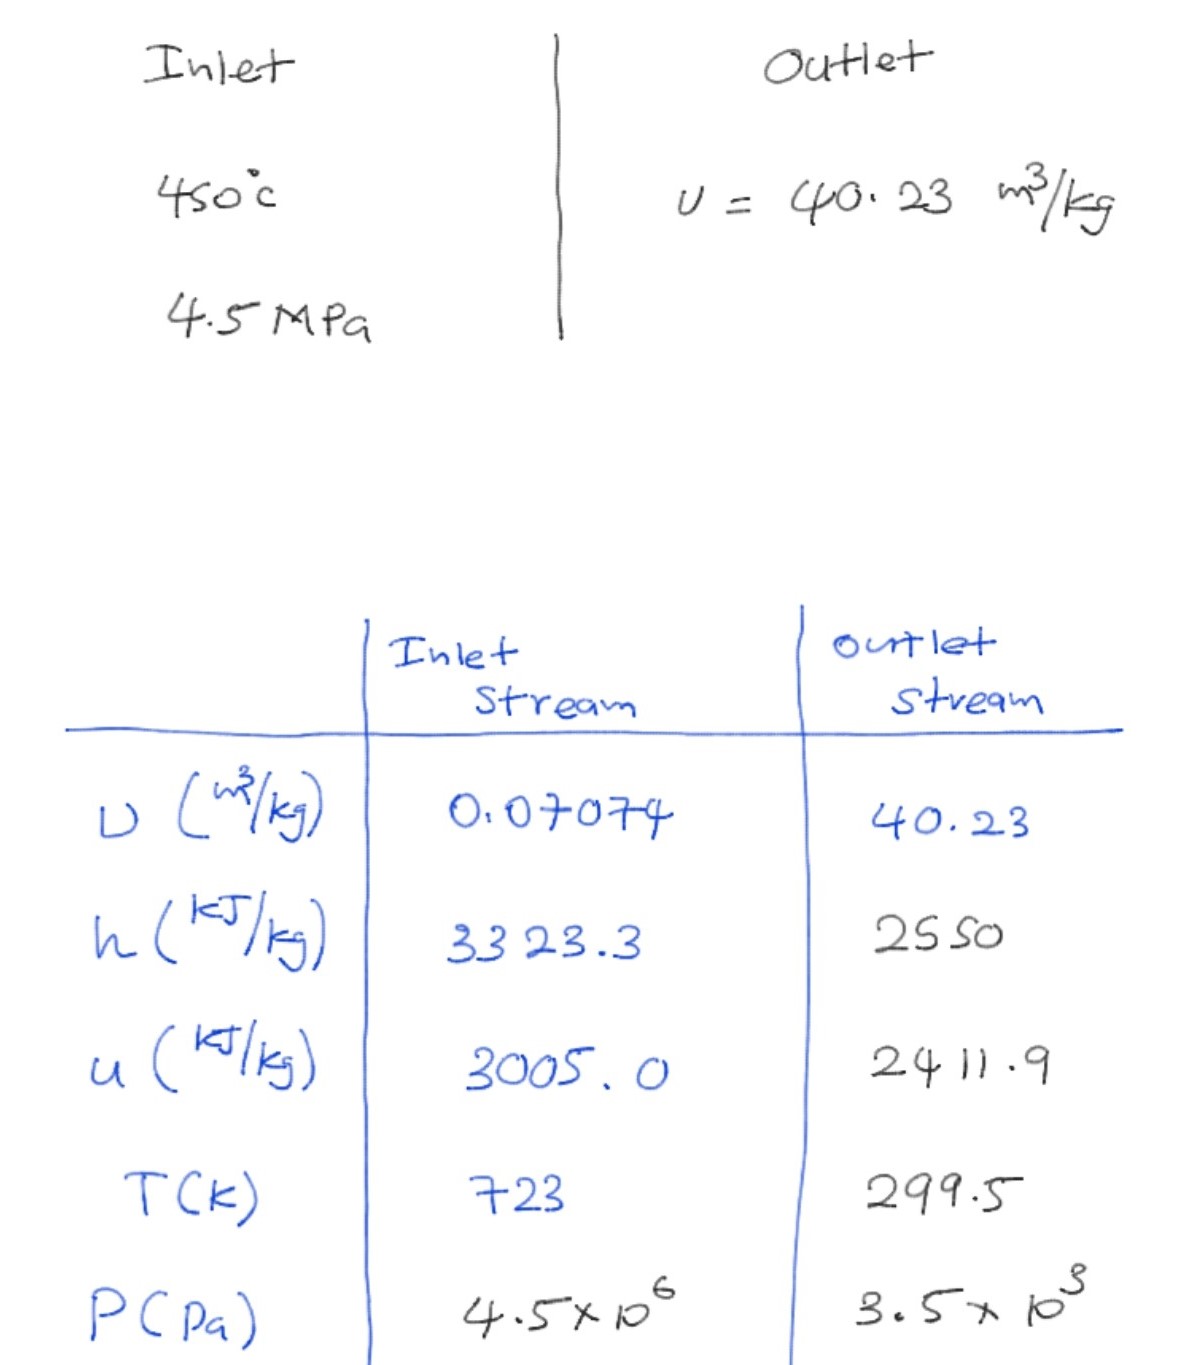 Inlet
Outlet
450°c
υ = 40.23 m³/kg
4.5 MPa
Inlet Stream
Outlet Stream
υ (m³/kg) 0.07074 40.23
h (kJ/kg) 3323.3 2550
u (kJ/kg) 3005.0 2411.9
T(K) 723 299.5
P(Pa) 4.5×10⁶ 3.5×10³